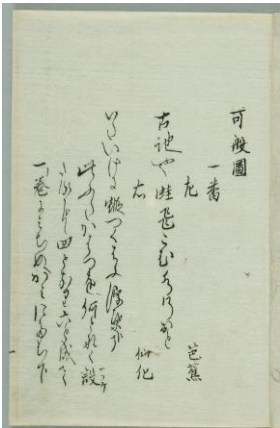 可般圖
一番
左
芭蕉
古池や蛙飛こむ水のおと
右
仙化
いたいけに蝦つくはふ浮葉哉
此ふたかはつを何となく設
たるに四となり六と成て
一巻にみちぬかみにたち下